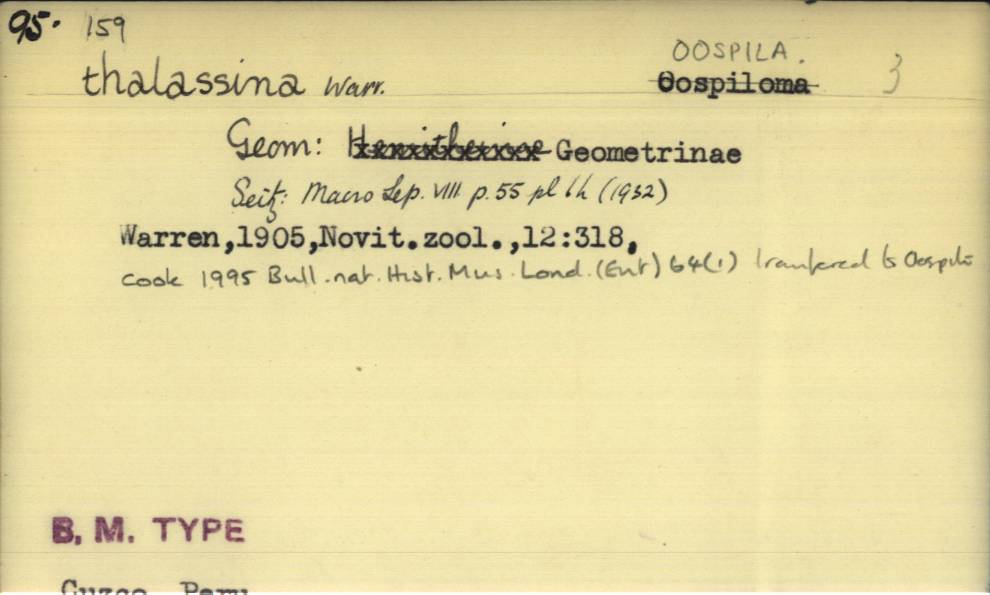 95. 159
OOSPILA.
thalassina Warr. Oospiloma 3
Geom: Hemitheinae Geometrinae
Seitz: Macro Lep. VIII p. 55 pl 6h (1932)
Warren,1905,Novit.zool.,12:318,
Cook 1995 Bull. nat. Hist. Mus. Lond. (Ent) 64(1) Tranfered to Oospila
B. M. TYPE
Cuzco, Peru